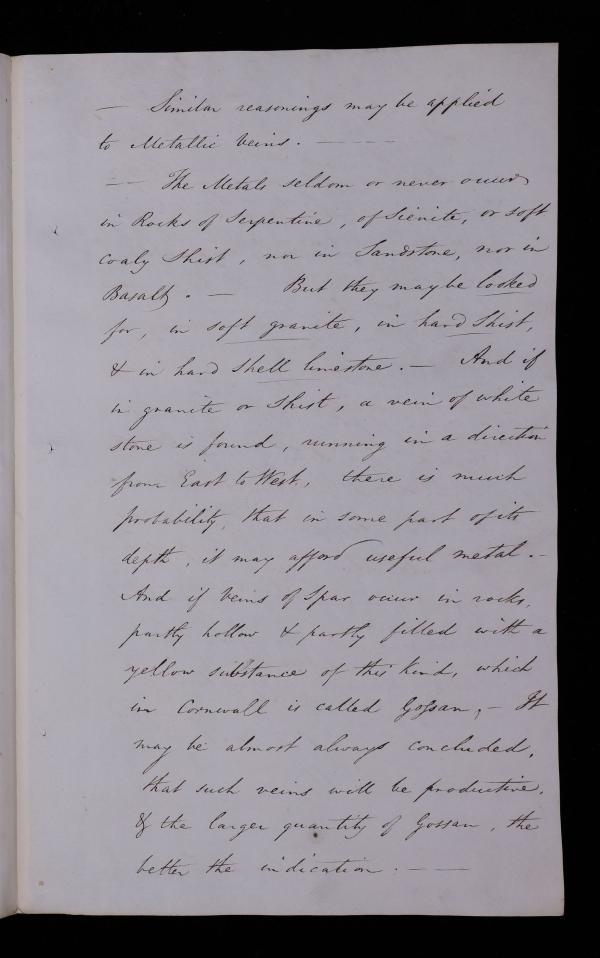 — Similar reasonings may be applied
to Metallic veins. — — —
— — The Metals seldom or never occur
in Rocks of Serpentine, of Sienite, or soft
coaly Shist, nor in Sandstone, nor in
Basalt. — But they may be looked
for, in soft granite, in hard Shist,
& in hard Shell limestone. — And if
in granite or Shist, a vein of white
stone is found, running in a direction
from East to West, there is much
probability, that in some part of its
depth, it may afford useful metal. —
And if veins of Spar occur in rocks,
partly hollow & partly filled with a
yellow substance of this kind, which
in Cornwall is called Gossan, — It
may be almost always concluded,
that such veins will be productive,
& the larger quantity of Gossan, the
better the indication. — — —